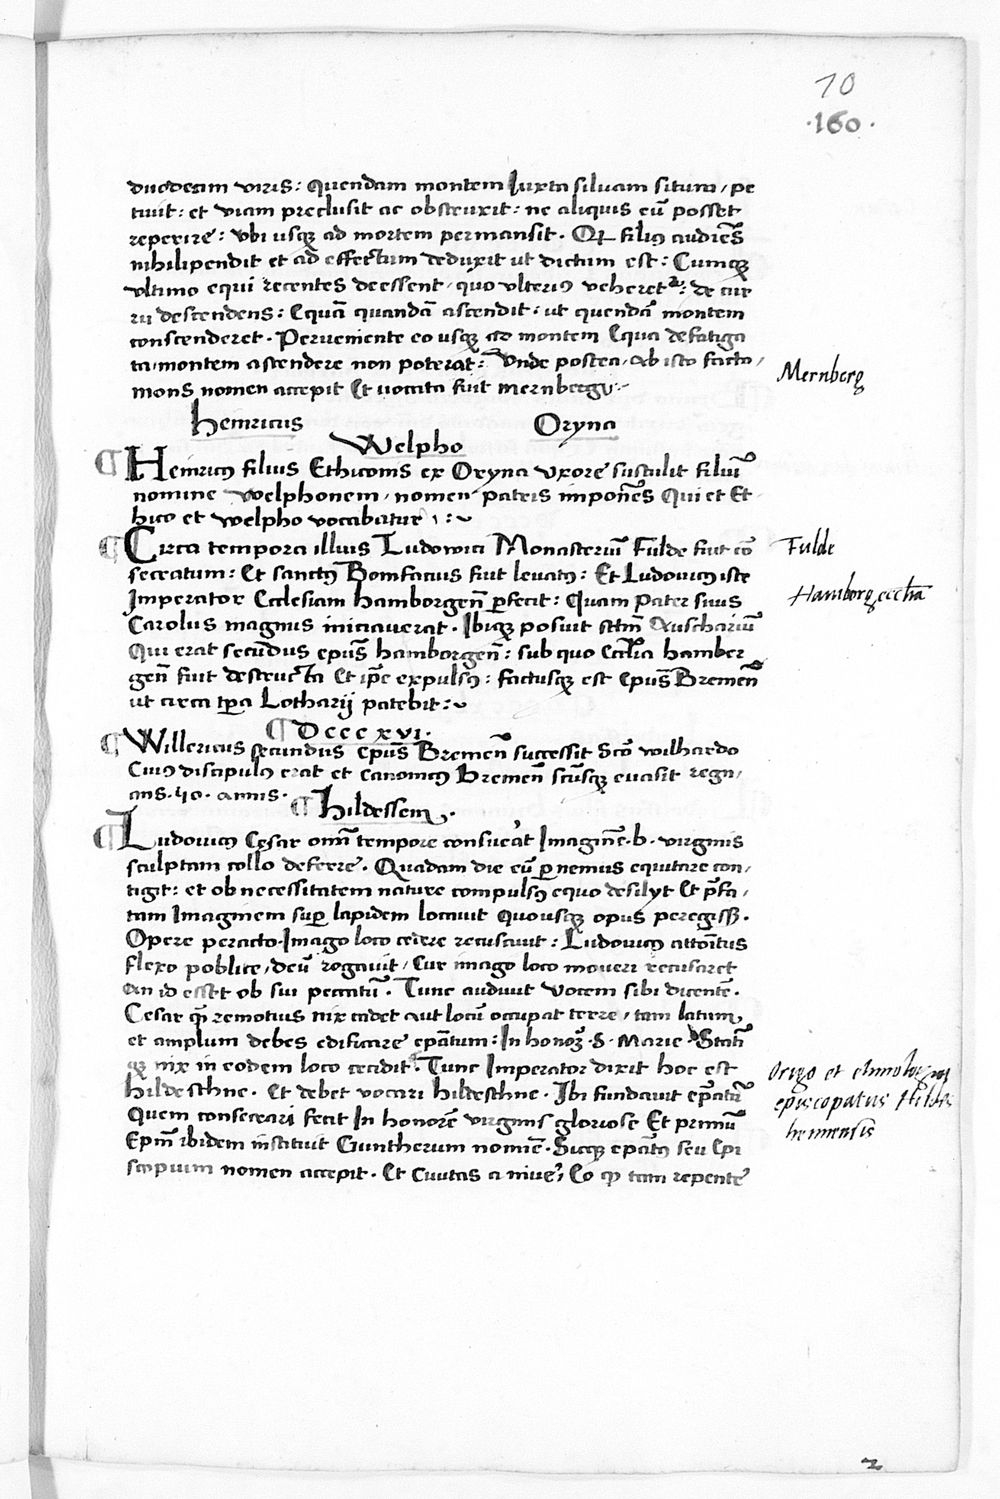 10
.160.
duodecim viris: Quendam montem Iuxta siluam situm, pe
tiuit: et viam preclusit ac obstruxit: ne aliquis eū posset
reperire: vbi usqꝫ ad mortem permansit. Qđ filiꝰ audiēs
nihilipendit et ad effectum deduxit ut dictum est: Cumqꝫ
vltimo equi recentes deessent, quo vlteriꝰ veheretᷣ: de cur
ru descendens: Equā quandā ascendit, ut quendā montem
conscenderet. Perueniente eo usqꝫ ad montem Equa defatiga
ta, montem ascendere non poterat: Vnde postea, Ab isto facto,
mons nomen accepit Et uocata fuit mernberg
Mernberg
Heinricus Oryna
Welpho
¶ Heinricꝰ filius Ethiconis ex Oryna vxore sustulit filiū
nomine Welphonem, nomen patris imponēs Qui et Et
hico et Welpho vocabatur
¶ Circa tempora illius Ludowici Monasteriū Fulde fuit cō
secratum: Et sanctꝰ Bonifacius fuit leuatꝰ: Et Ludouicꝰ iste
Fulde
Imperator Ecclesiam hamborgeñ ꝑfecit: Quam Pater suus
Hamborg. eccl̄ia
Carolus magnus iniciauerat. Ibiqꝫ posuit sct̄m Anschariū
Qui erat secūdus ep̄us hamborgeñ: sub quo Eccl̄ia hamber
geñ fuit destructa Et ip̄e expulsꝰ: factusqꝫ est Ep̄us Bremeñ
ut circa tꝑa Lotharij patebit:
¶ Dcccxvi.
¶ Willericus secundus ep̄us Bremeñ successit Scō wilhardo
Cuiꝰ discipulꝰ erat et canonicꝰ Bremeñ scūsqꝫ euasit regn,
ans. 50. annis.
¶ hildessem.
¶ Ludouicꝰ Cesar omī tempore consueᷓat Imaginē. b. virginis
sculptam collo deferre. Quadam die cū ꝑ nemus equitare con,
tigit: et ob necessitatem nature compulsꝰ equo desilyt Et p̄fa,
tam Imaginem suꝑ lapidem locauit quousqꝫ opus peregiss.
Opere peracto. Imago loco cedere recusauit: Ludouicꝰ attoītus
flexo poblite, deū rogauit, Cur imago loco moueri recusaret
An id esset ob sui peccatū. Tunc audiuit Vocem sibi dicentē.
Cesar qm̄ remotius nix cadet Aut locū occupat terre, tam latum
et amplum debes edificare ep̄atum: In honoꝝ. S. Marie. Stati
qꝫ nix in eodem loco cecidit. Tunc Imperator dixit hoc est
hildeschne. Et debet vocari hildeschne. Ibi fundauit ep̄atū
Quem consecrari fecit In honorē virginis gloriose Et primū
Ep̄m ibidem instituit Guntherum nomīe. Sicqꝫ ep̄atꝰ seu Epi
scopium nomen accepit. Et Ciuitas a niue, Eo qđ tam repente
Origo et
episcopatus Hildes
hemensis
2